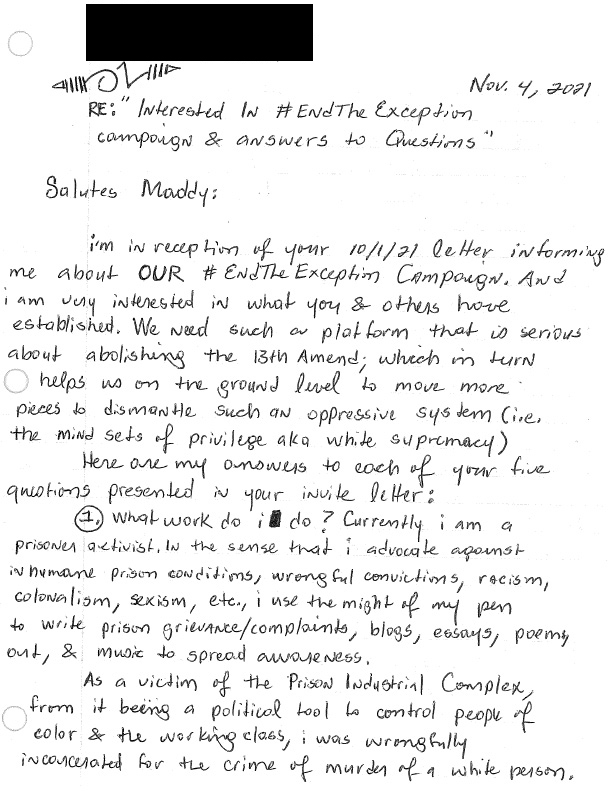 Nov. 4, 2021
RE: "Interested In #EndTheException
campaign & answers to Questions"
Salutes Maddy:
i'm in reception of your 10/1/21 letter informing
me about OUR #EndTheException Campaign. And
i am very interested in what you & others have
established. We need such a platform that is serious
about abolishing the 13th Amend; which in turn
helps us on the ground level to move more
pieces to dismantle such an oppressive system (i.e.
the mind sets of privilege aka white supremacy)
Here are my answers to each of your five
questions presented in your invite letter:
1. What work do i do? Currently i am a
prisoner activist. In the sense that i advocate against
inhumane prison conditions, wrongful convictions, racism,
colonalism, sexism, etc., i use the might of my pen
to write prison grievance/complaints, blogs, essays, poems,
art, & music to spread awareness.
As a victim of the Prison Industrial Complex,
from it being a political tool to control people of
color & the working class, i was wrongfully
incarcerated for the crime of murder of a white person.